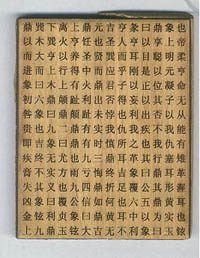 鼎巽下離上鼎元吉亨象曰鼎象也
以木巽火亨飪也聖人亨以享上帝
而大亨以養聖賢巽而耳目聰明柔
進而上行得中而應乎剛是以元亨
象曰木上有火鼎君子以正位凝命
初六鼎顛趾利出否得妾以其子无
咎象曰鼎顛趾未悖也利出否以從
貴也九二鼎有實我仇有疾不我能
即吉象曰鼎有實慎所之也我仇有
疾終无尤也九三鼎耳革其行塞雉
膏不食方雨虧悔終吉象曰鼎耳革
失其義也九四鼎折足覆公餗其形渥
凶象曰覆公餗信如何也六五鼎黃耳
金鉉利貞象曰鼎黃耳中以為實也
上九鼎玉鉉大吉无不利象曰玉鉉